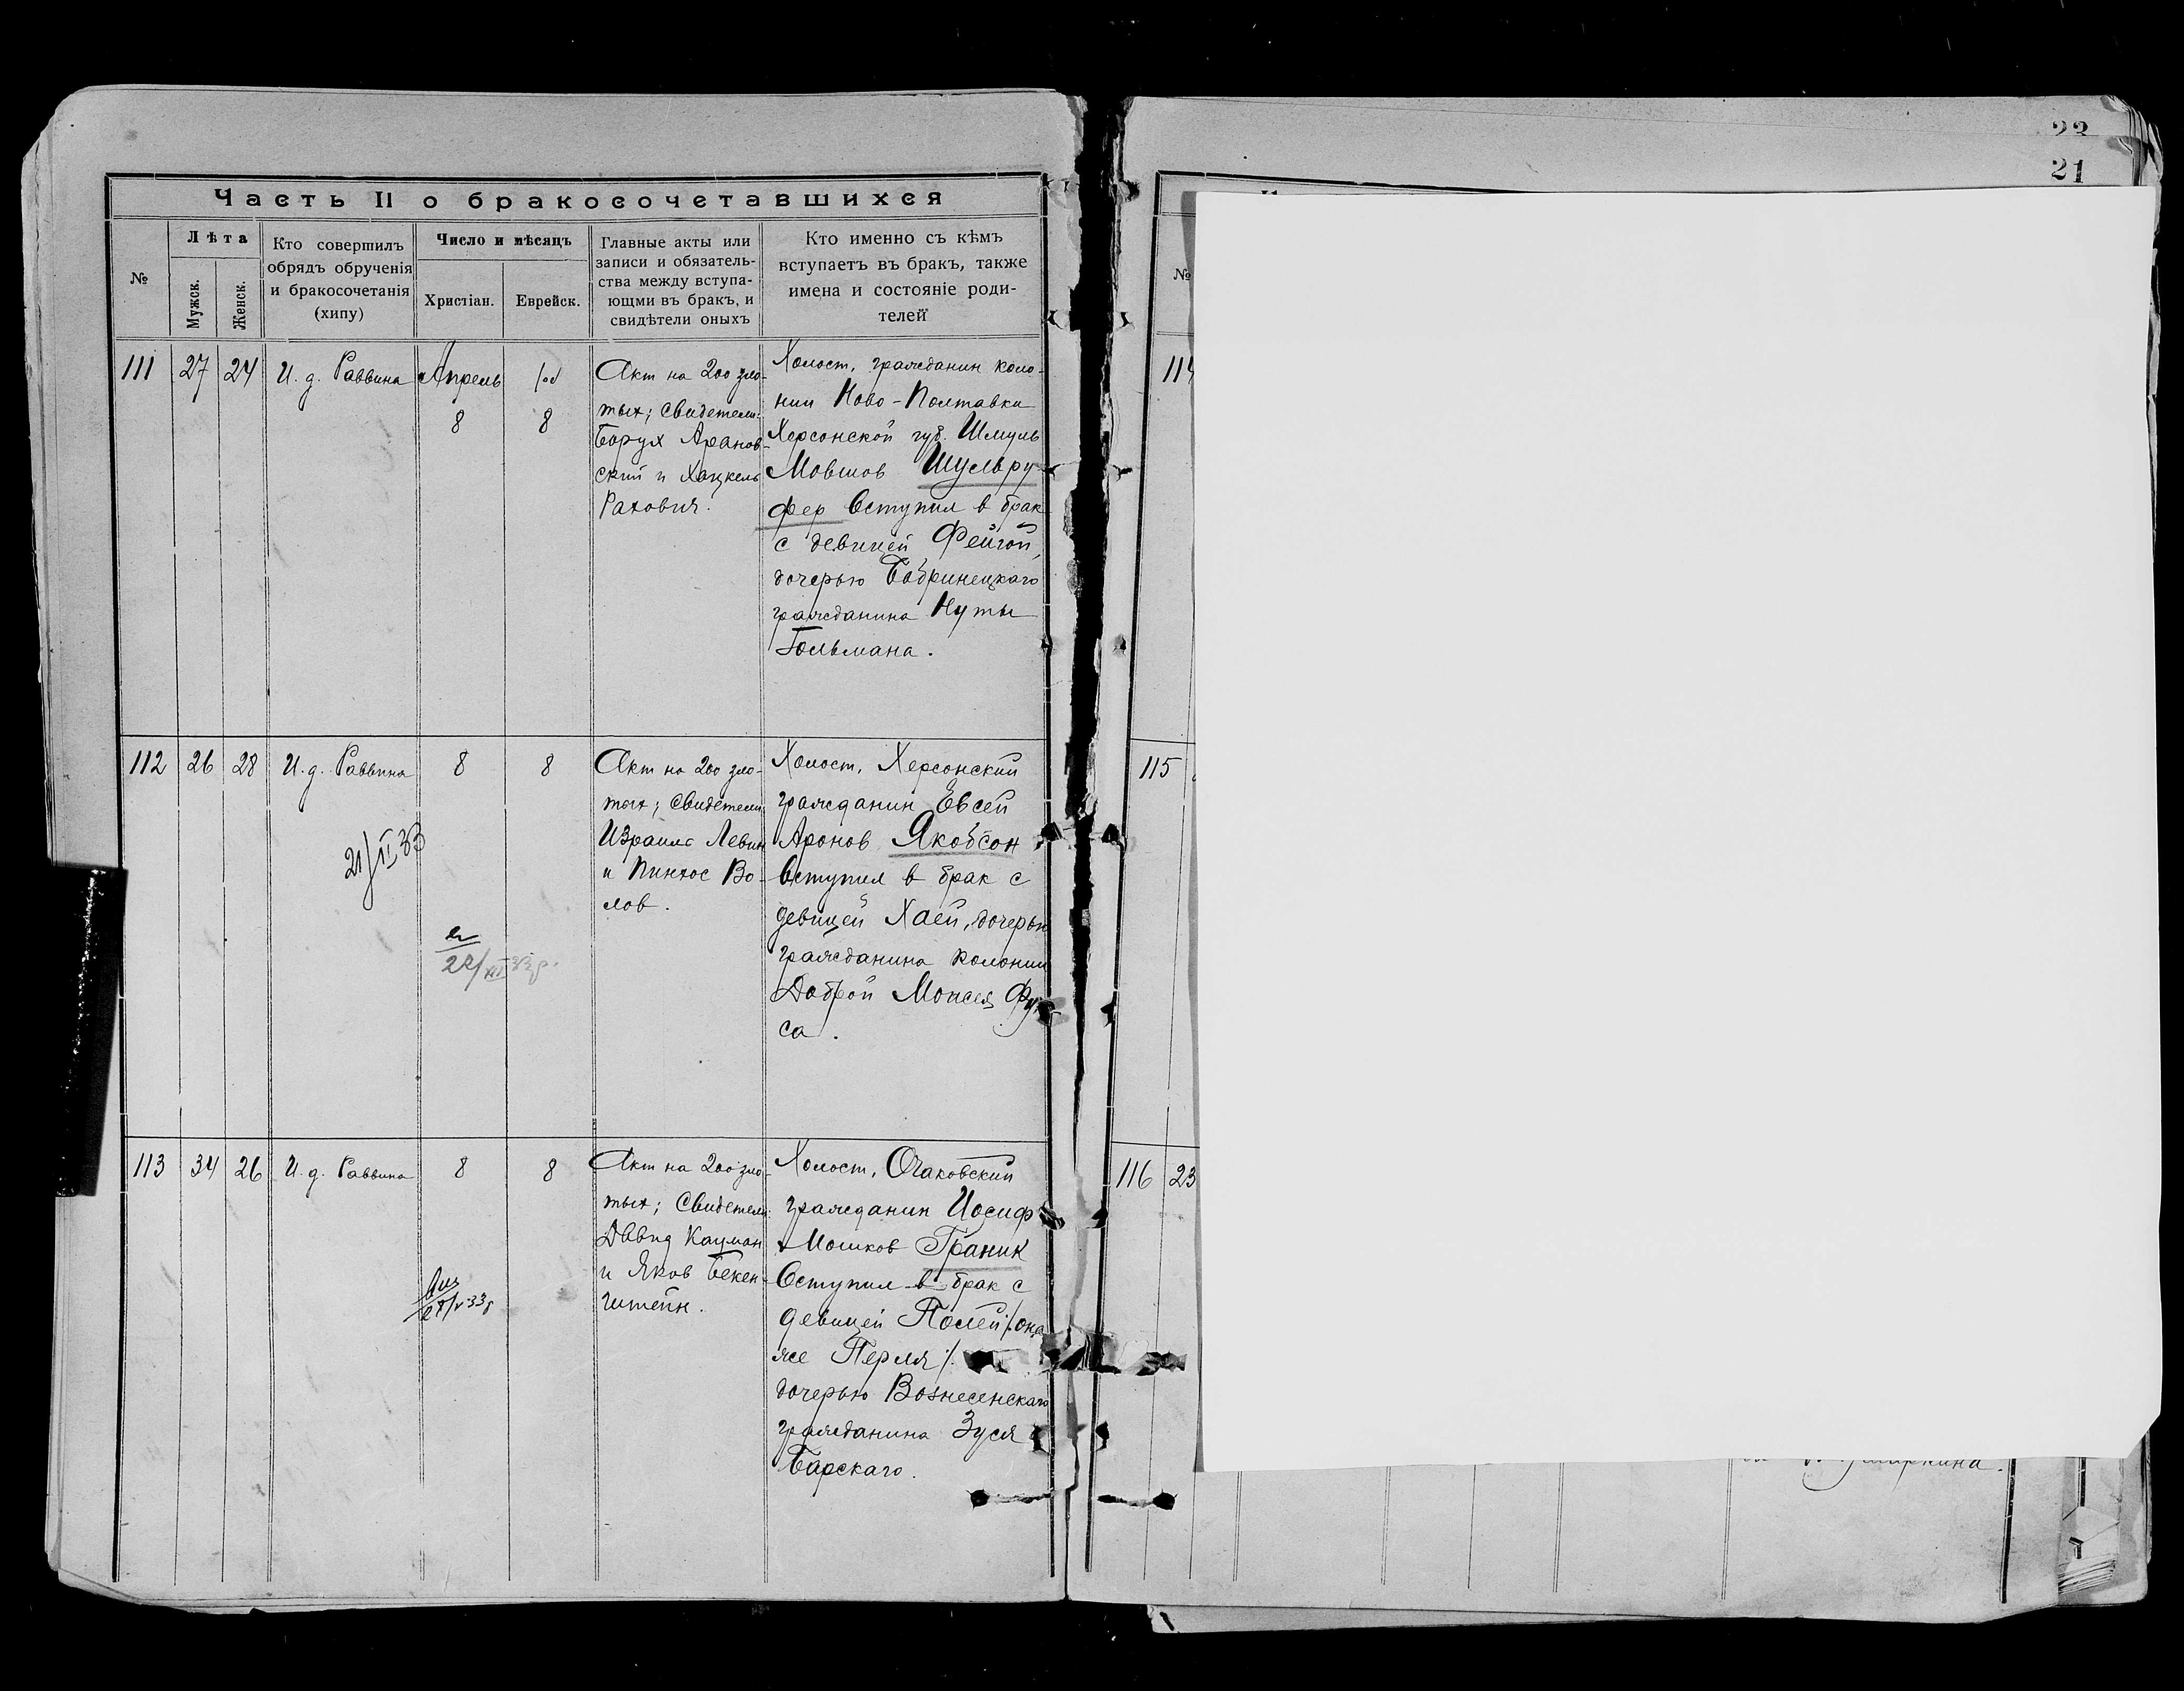 23
21
Часть II о бракосочетавшихся
№
Лѣта
Мужск.
Женск.
Кто совершилъ
обрядъ обрученія
и бракосочетанія
(хипу)
Число и мѣсяцъ
Христіан.
Еврейск.
Главные акты или
записи и обязатель-
ства между вступа-
ющми въ бракъ, и
свидѣтели оныхъ
Кто именно съ кѣмъ
вступаетъ въ бракъ, также
имена и состояніе роди-
телей
111
27
24
И. д. Раввина
Апрель
8
8
Акт на 200 зло-
тых; Свидетели:
Борух Арановс-
ский и Хацкель
Рахович.
Холост, гражданин коло-
нии Ново-Полтавки
Херсонской губ. Шмуль
Мовшов Шульру-
фер вступил в брак
с девицей Фейгой,
дочерью Бобринецкаго
гражданина Нуты
Гольмана.
112
26
28
И. д. Раввина
8
8
Акт на 200 зло-
тых; Свидетели:
Израиль Левин
и Пинхос Во-
лов.
Холост, Херсонский
гражданин Евсей
Аронов Якобсон
вступил в брак с
девицей Хаей, дочерью
гражданина колонии
Доброй Моисея Фук-
са.
21/II 33
22/XII 33 г.
113
34
26
И. д. Раввина
8
8
Акт на 200 зло-
тых; Свидетели:
Давид Кацман
и Яков Бекен-
штейн.
Холост, Очаковский
гражданин Иосиф
Мошков Граник
вступил в брак с
девицей Полей /она
же Перля/.
дочерью Вознесенскаго
гражданина Зуся
Барскаго.
№
114
115
116
23